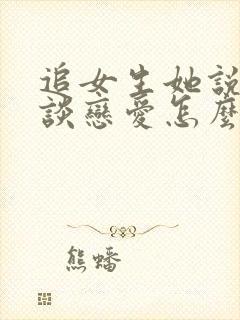 追女生她說
談戀愛怎麼
熊蟠